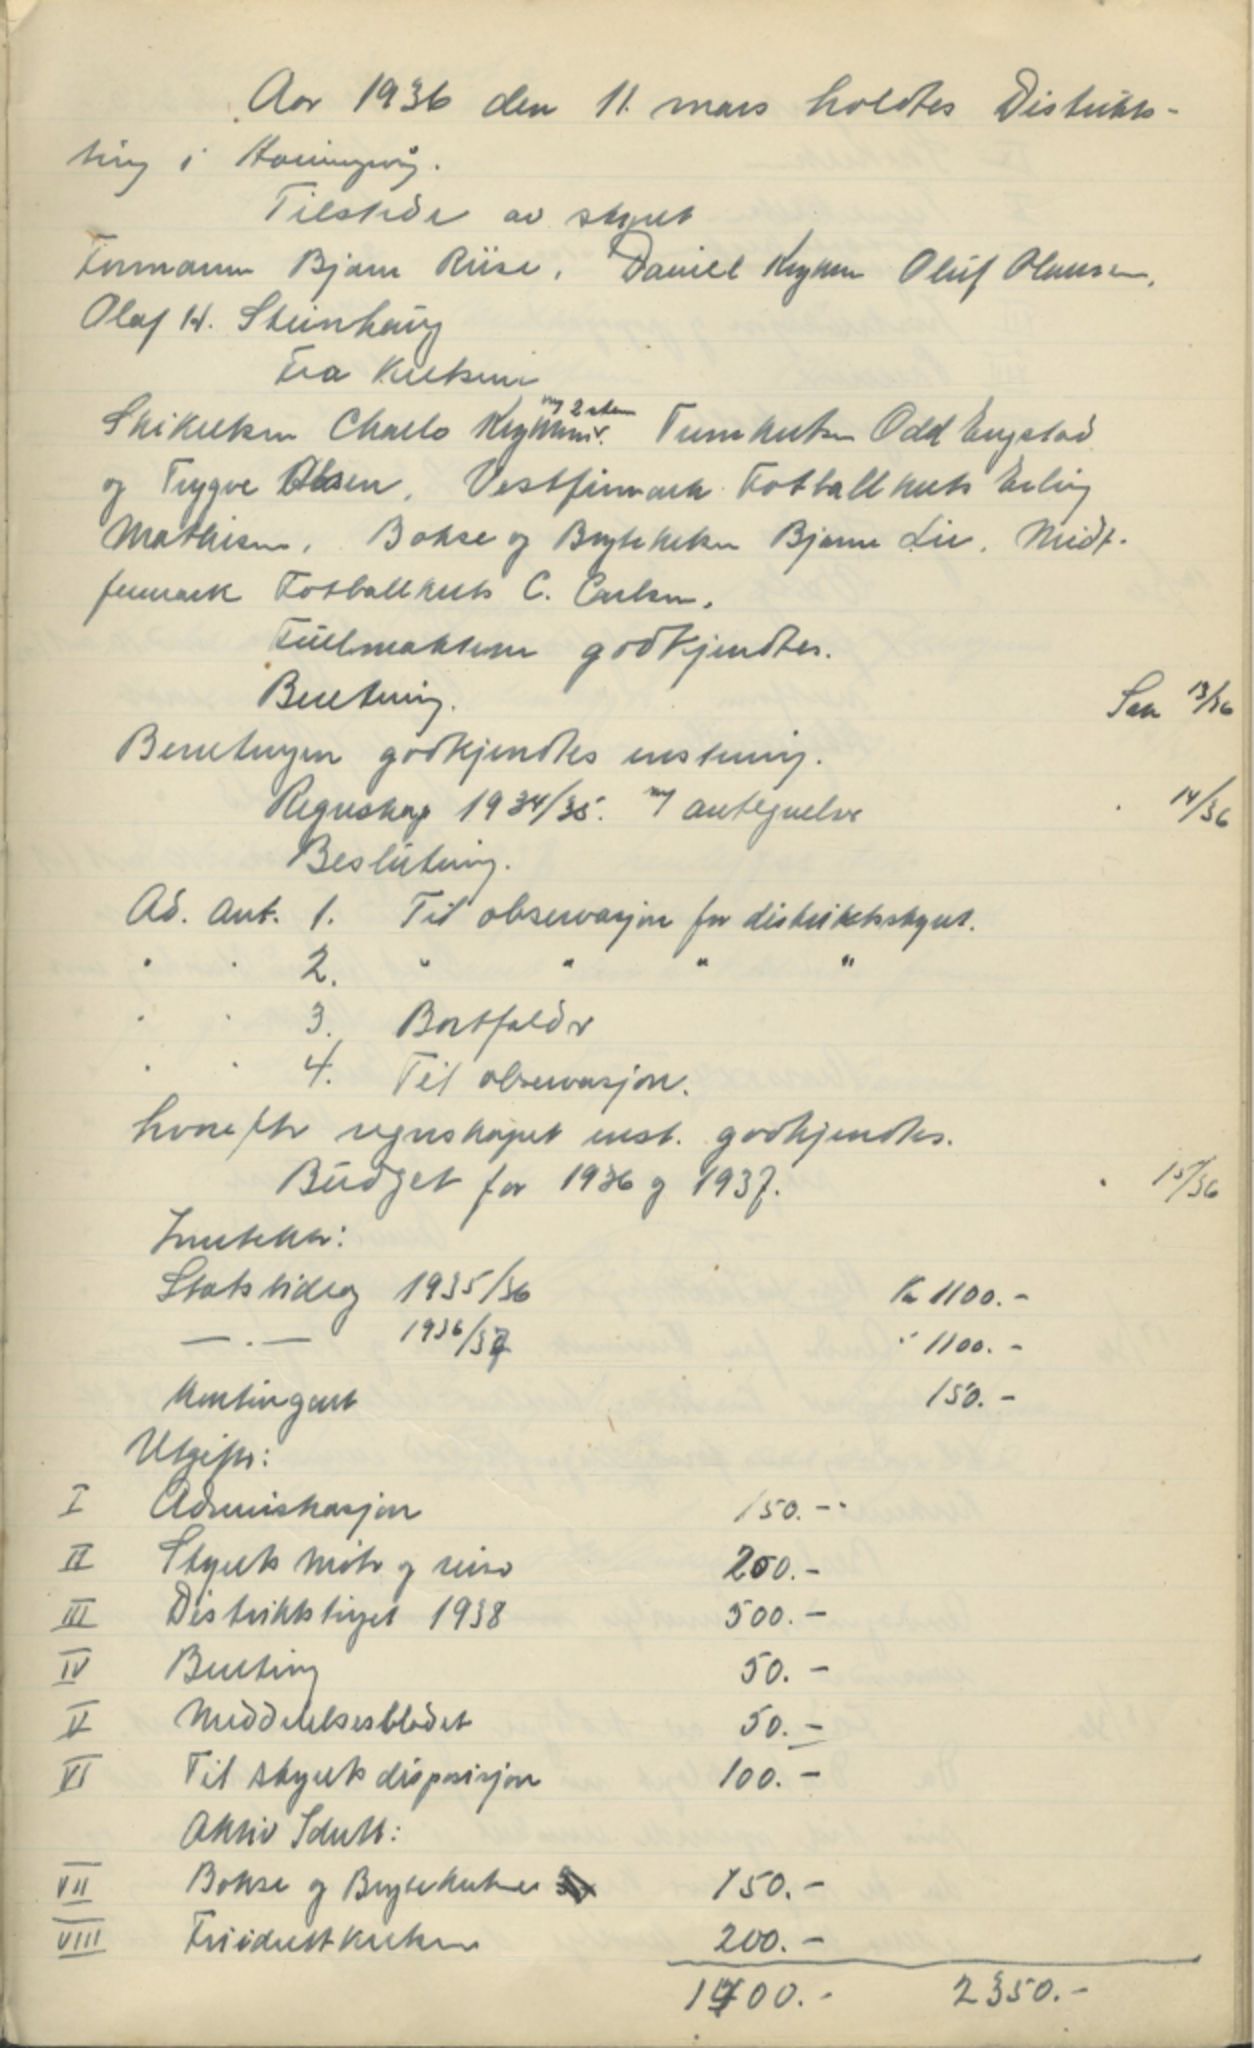 Aar 1936 den 11. mars holdtes Distrikts-
ting i Honningsvåg.
Tilstede av styret
Formann Bjarne Riise, Daniel Olúf Olaussen,
Olaf H. Steinhaúg
Fra Kretsene
Skikretsen Charls og Turnkretsen Odd Engstad
og Trygve Olsen, Vestfinmark Fotballkrets Erling
Mathisen, Bokse og Brytekretsen Bjarne Lie, Midt-
finmark Fotballkrets C. Carlsen.
Fúllmaktene godkjendtes.
Beretning. Sak 13/36
Beretningen godkjendtes enstemig.
Regnskap 1934/35. m/ antegnelser . 14/36
Beslútning.
Ad. Ant. 1. Til observasjon for distriktsstyret.
" " 2. " " " "
" " 3. Bortfalder
" " 4. Til observasjon.
hvorefter regnskapet enst. godkjendtes.
Búdget for 1936 og 1937. . 15/36
Inntekter:
Statsbidrag 1935/36 Kr 1100.-
— " — 1936/37 " 1100.-
Kontingent 150.-
Utgifter:
I Administrasjon 150.-
II Styrets møter og reiser 200.-
III Distriktstinget 1938 500.-
IV Beretning 50.-
V Meddelelsesbladet 50.-
VI Til styrets disposisjon 100.-
Aktiv Idrett:
VII Bokse og Brytekretsen 150.-
VIII Friidrettkretsen 200.-
1400.- 2350.-